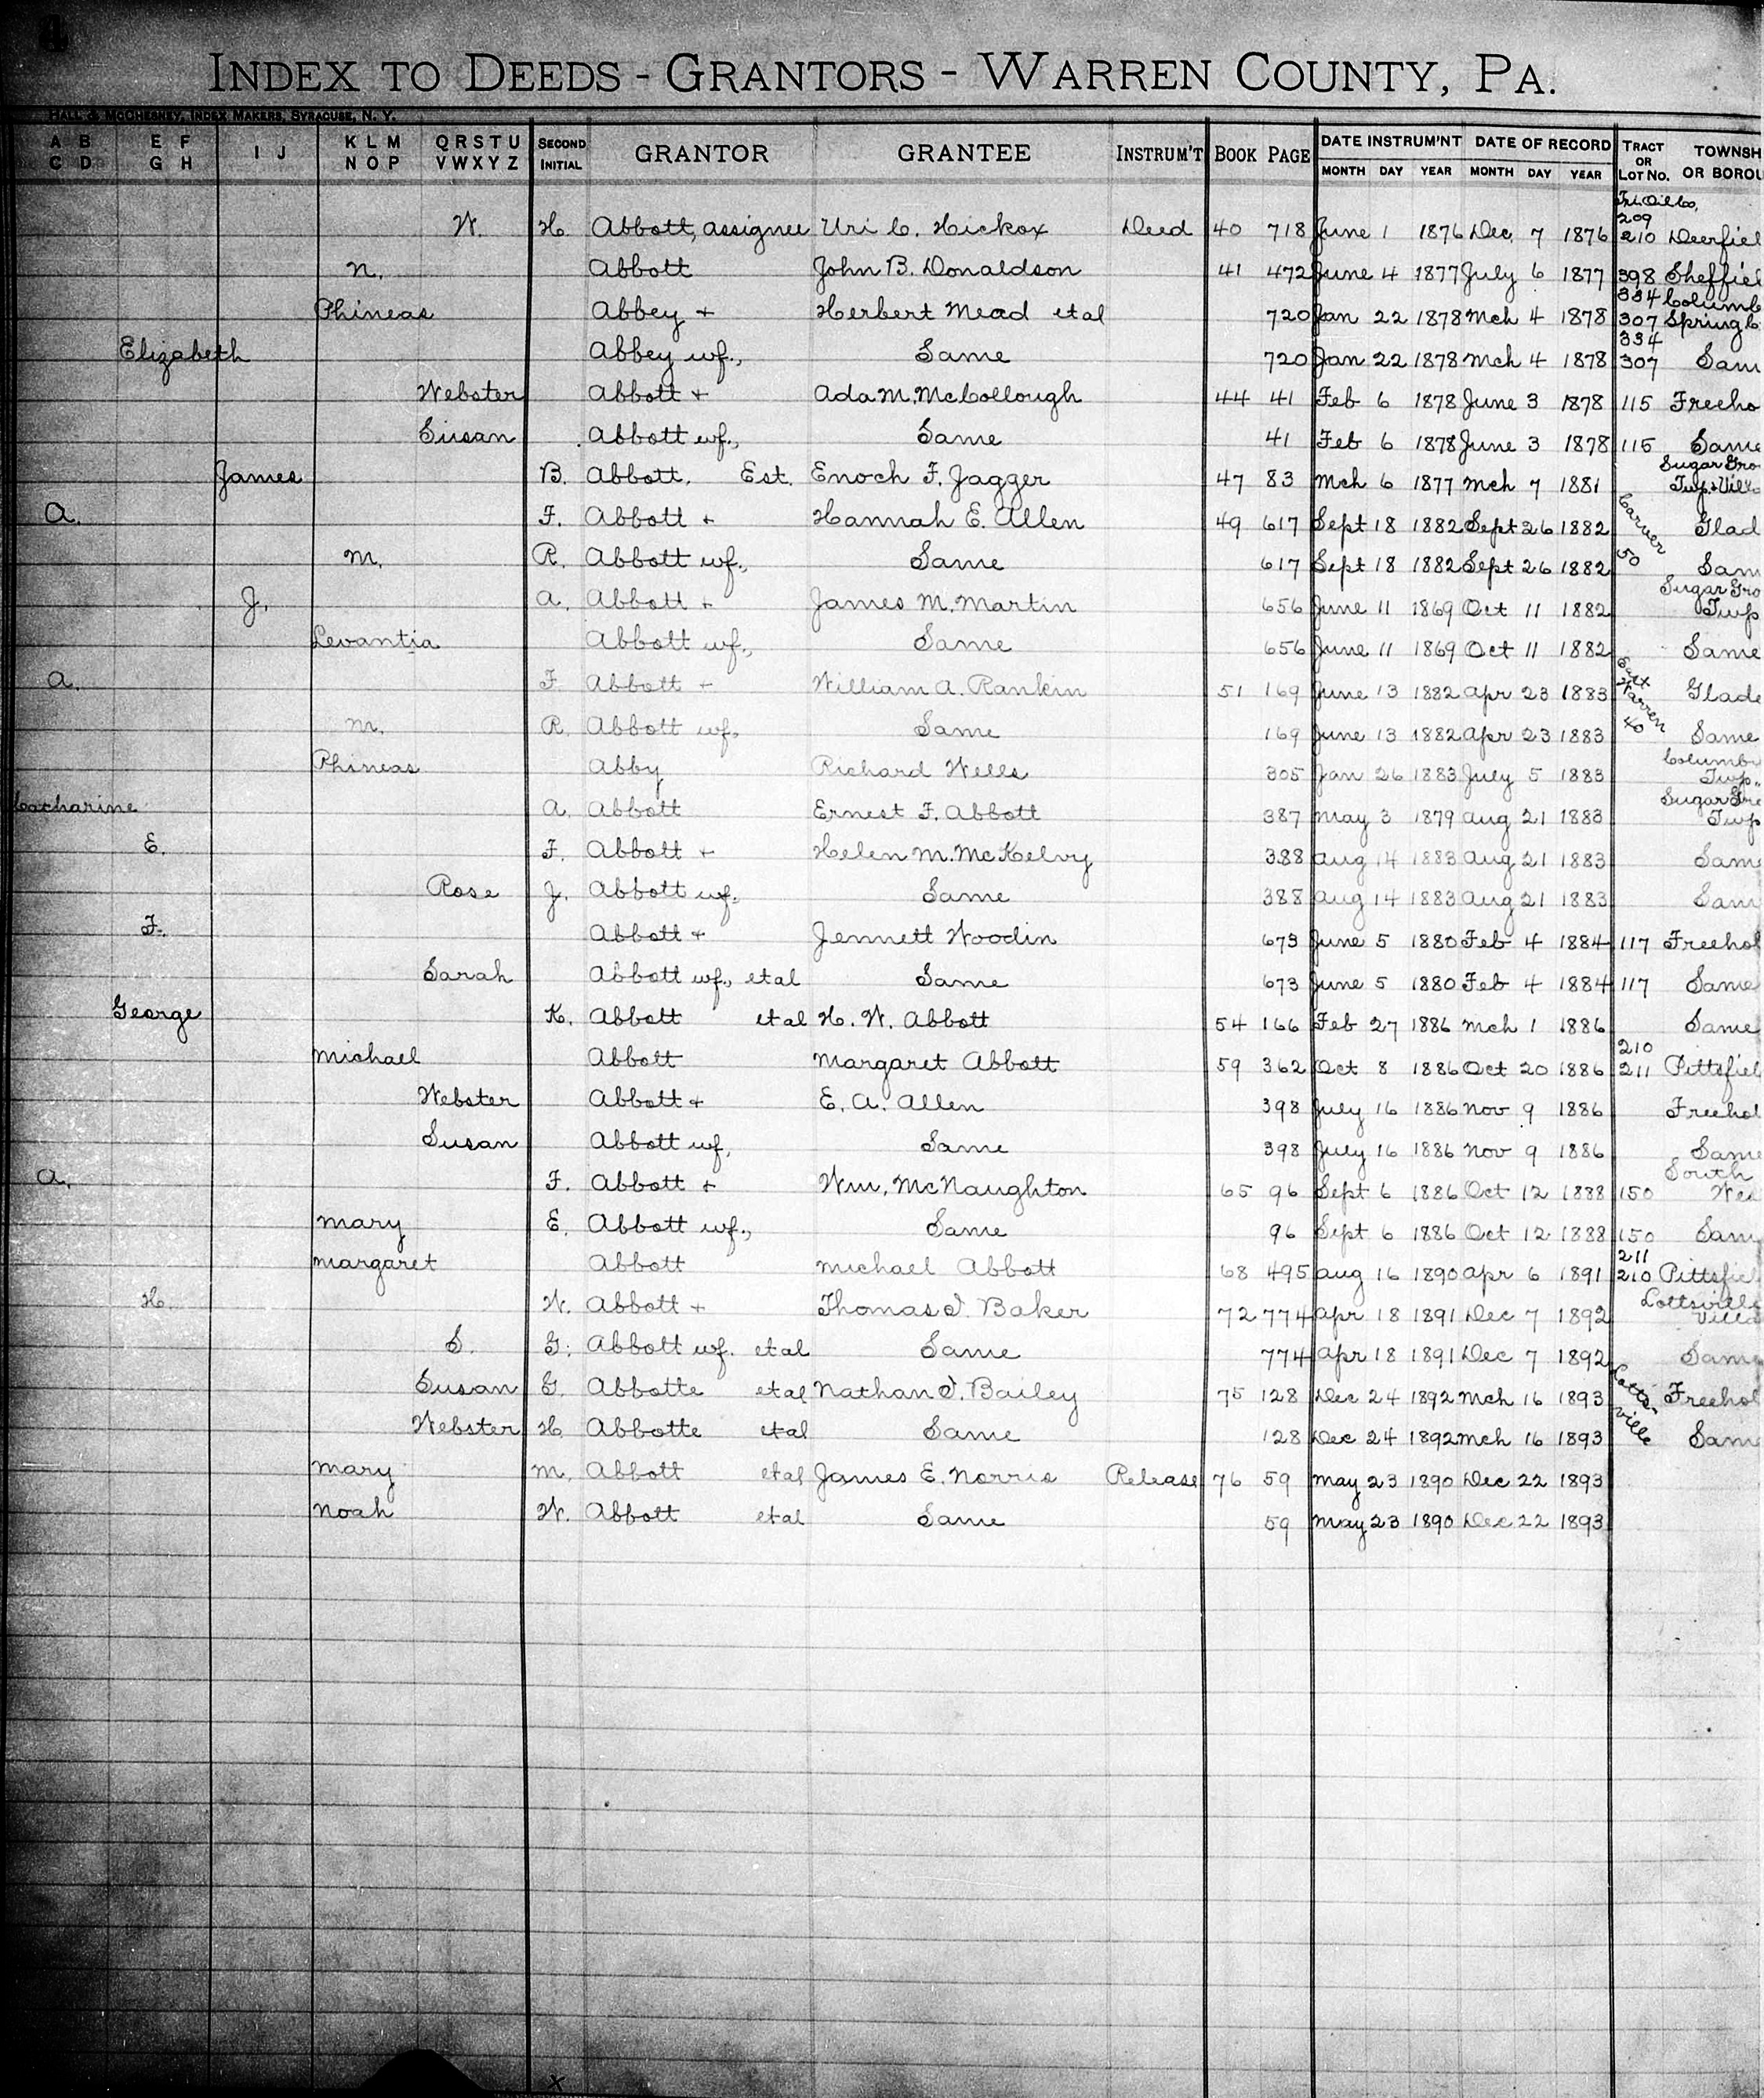 4
INDEX TO DEEDS - GRANTORS - WARREN COUNTY, PA.
HALL & MCCHESNEY, INDEX MAKERS, SYRACUSE, N. Y.
A B C D E F G H I J K L M N O P Q R S T U V W X Y Z SECOND INITIAL GRANTOR GRANTEE INSTRUM'T BOOK PAGE DATE INSTRUM'NT MONTH DAY YEAR DATE OF RECORD MONTH DAY YEAR TRACT OR LOT No. TOWNSH OR BOROU
W. H. Abbott, assignee Uri C. Hickox Deed 40 718 June 1 1876 Dec. 7 1876 209 210 Deerfiel
N. Abbott John B. Donaldson 41 472 June 4 1877 July 6 1877 398 Sheffiel
Phineas Abbey + Herbert Mead et al 720 Jan 22 1878 Mch 4 1878 334 307 Columb Spring C
Elizabeth Abbey wf., Same 720 Jan 22 1878 Mch 4 1878 334 307 Sam
Webster Abbott + Ada M. McCollough 44 41 Feb 6 1878 June 3 1878 115 Freeho
Susan Abbott wf., Same 41 Feb 6 1878 June 3 1878 115 Same
James B. Abbott, Est. Enoch F. Jagger 47 83 Mch 6 1877 Mch 7 1881 Sugar Gro Twp & Vill
A. F. Abbott + Hannah E. Allen 49 617 Sept 18 1882 Sept 26 1882 Carver 50 Glad
M. R. Abbott wf., Same 617 Sept 18 1882 Sept 26 1882 Sam
J. A. Abbott + James M. Martin 656 June 11 1869 Oct 11 1882 Sugar Gro Twp
Levantia Abbott wf., Same 656 June 11 1869 Oct 11 1882 Same
A. F. Abbott + William A. Rankin 51 169 June 13 1882 Apr 23 1883 East Warren 40 Glade
M. R. Abbott wf, Same 169 June 13 1882 Apr 23 1883 Same
Phineas Abby Richard Wells 305 Jan 26 1883 July 5 1883 Columbu Twp.
Catharine A. Abbott Ernest F. Abbott 387 May 3 1879 Aug 21 1883 Sugar Gro Twp
E. F. Abbott + Helen M. McKelvy 388 Aug 14 1883 Aug 21 1883 Sam
Rose J. Abbott wf. Same 388 Aug 14 1883 Aug 21 1883 Sam
F. Abbott + Jennett Woodin 673 June 5 1880 Feb 4 1884 117 Freehol
Sarah Abbott wf., et al Same 673 June 5 1880 Feb 4 1884 117 Same
George K. Abbott et al H. W. Abbott 54 166 Feb 27 1886 Mch 1 1886 Same
Michael Abbott Margaret Abbott 59 362 Oct 8 1886 Oct 20 1886 210 211 Pittsfiel
Webster Abbott + E. A. Allen 398 July 16 1886 Nov 9 1886 Freehol
Susan Abbott wf. Same 398 July 16 1886 Nov 9 1886 Same
A. F. Abbott + Wm. McNaughton 65 96 Sept 6 1886 Oct 12 1888 150 South Wes
Mary E. Abbott wf., Same 96 Sept 6 1886 Oct 12 1888 150 Sam
Margaret Abbott Michael Abbott 68 495 Aug 16 1890 Apr 6 1891 211 210 Pittsfiel
H. W. Abbott + Thomas J. Baker 72 774 Apr 18 1891 Dec 7 1892 Lottsville Villa
S. G. Abbott wf. et al Same 774 Apr 18 1891 Dec 7 1892 Same
Susan G. Abbotte et al Nathan J. Bailey 75 128 Dec 24 1892 Mch 16 1893 Lotts- ville Freehol
Webster H. Abbotte et al Same 128 Dec 24 1892 Mch 16 1893 Sam
Mary M. Abbott et al James E. Norris Release 76 59 May 23 1890 Dec 22 1893
Noah W. Abbott et al Same 59 May 23 1890 Dec 22 1893
x